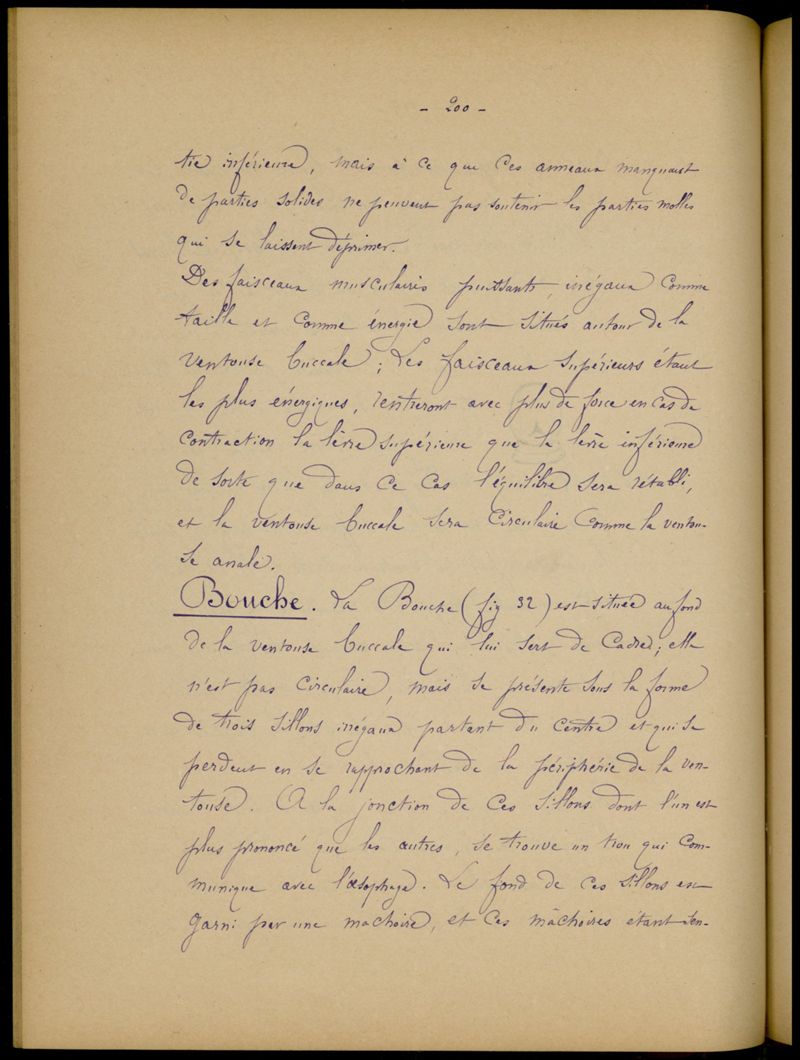 - 200 -
tie inférieure, mais à ce que ces anneaux manquant
de parties solides ne peuvent pas soutenir les parties molles
qui se laissent déprimer.
Des faisceaux musculaires puissants, inégaux comme
taille et comme énergie sont situés autour de la
ventouse buccale ; Les faisceaux supérieurs étant
les plus énergiques, rentreront avec plus de force en cas de
contraction la lèvre supérieure que la lèvre inférieure
de sorte que dans ce cas l'équilibre sera rétabli,
et la ventouse buccale sera circulaire comme la ventou-
se anale.
Bouche. La Bouche (fig 32) est située au fond
de la ventouse buccale qui lui sert de Cadre; elle
n'est pas circulaire, mais se présente sous la forme
de trois sillons inégaux partant du centre et qui se
perdent en se rapprochant de la périphérie de la ven-
touse. A la jonction de ces sillons dont l'un est
plus prononcé que les autres, se trouve un trou qui com-
munique avec l'œsophage. Le fond de ces sillons est
garni par une machoire, et ces mâchoires étant den-